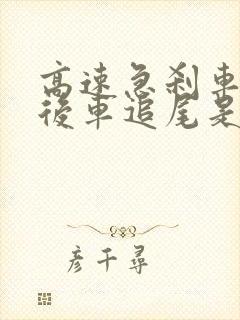 高速急刹車
後車追尾是
彦千尋